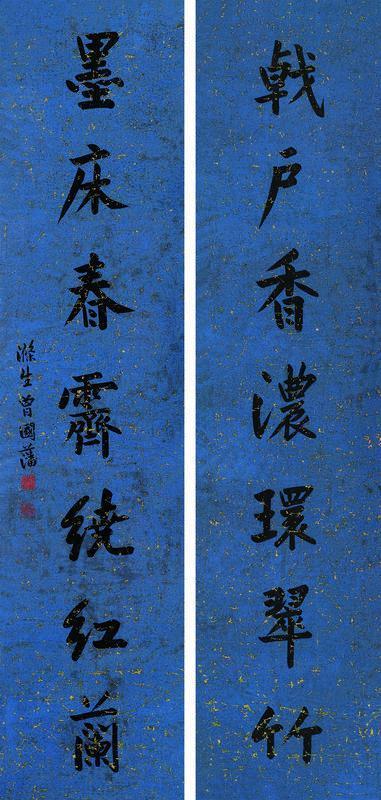 戟户香濃環翠竹
墨床春霽繞紅蘭
滌生曾國藩